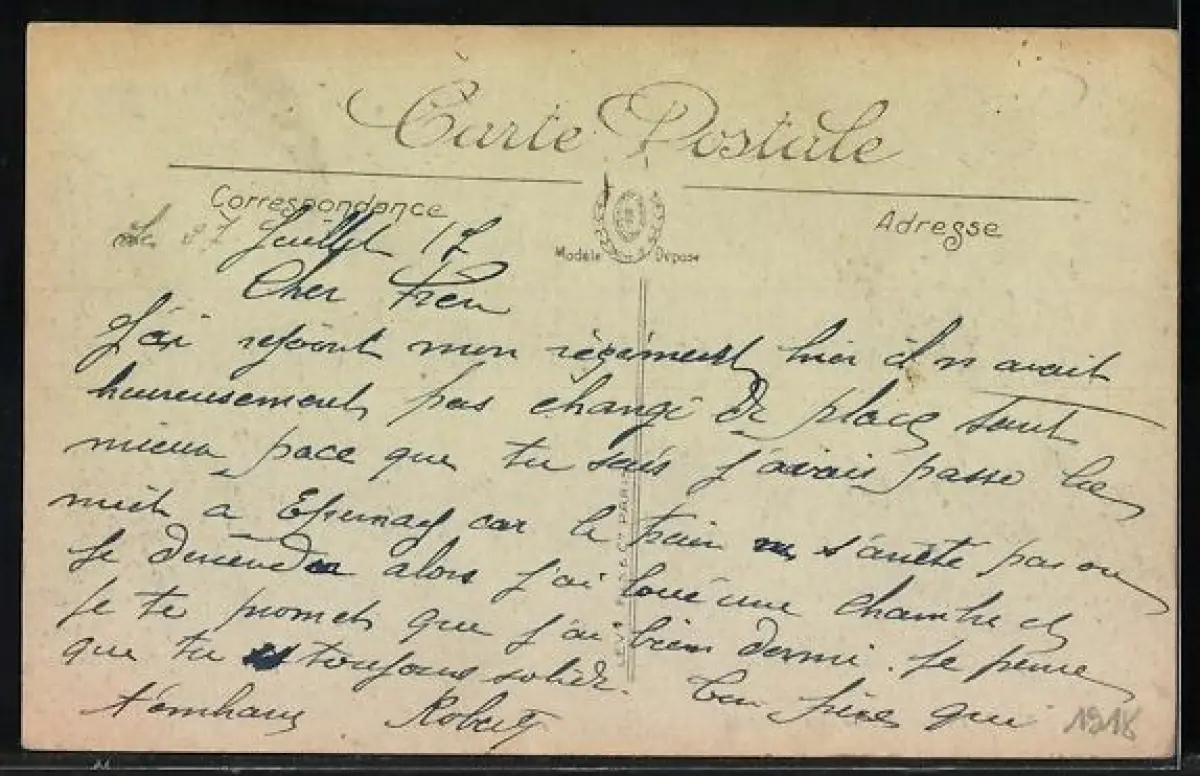 Carte Postale
Correspondance
Adresse
Modèle Déposé
Le 27 Juillet 17
Cher Frere
J'ai rejoint mon régiment hier il n avait
heureusement pas changé de place tant
mieux pace que tu sais j'avais passe la
nuit a Epernay car le train ne s'arrête pas ou
je descend alors j'ai loué une chambre et
je te promet que j'ai bien dormi. Je pense
que tu es toujours solide. Ton frère qui
t'embrasse Robert
1918